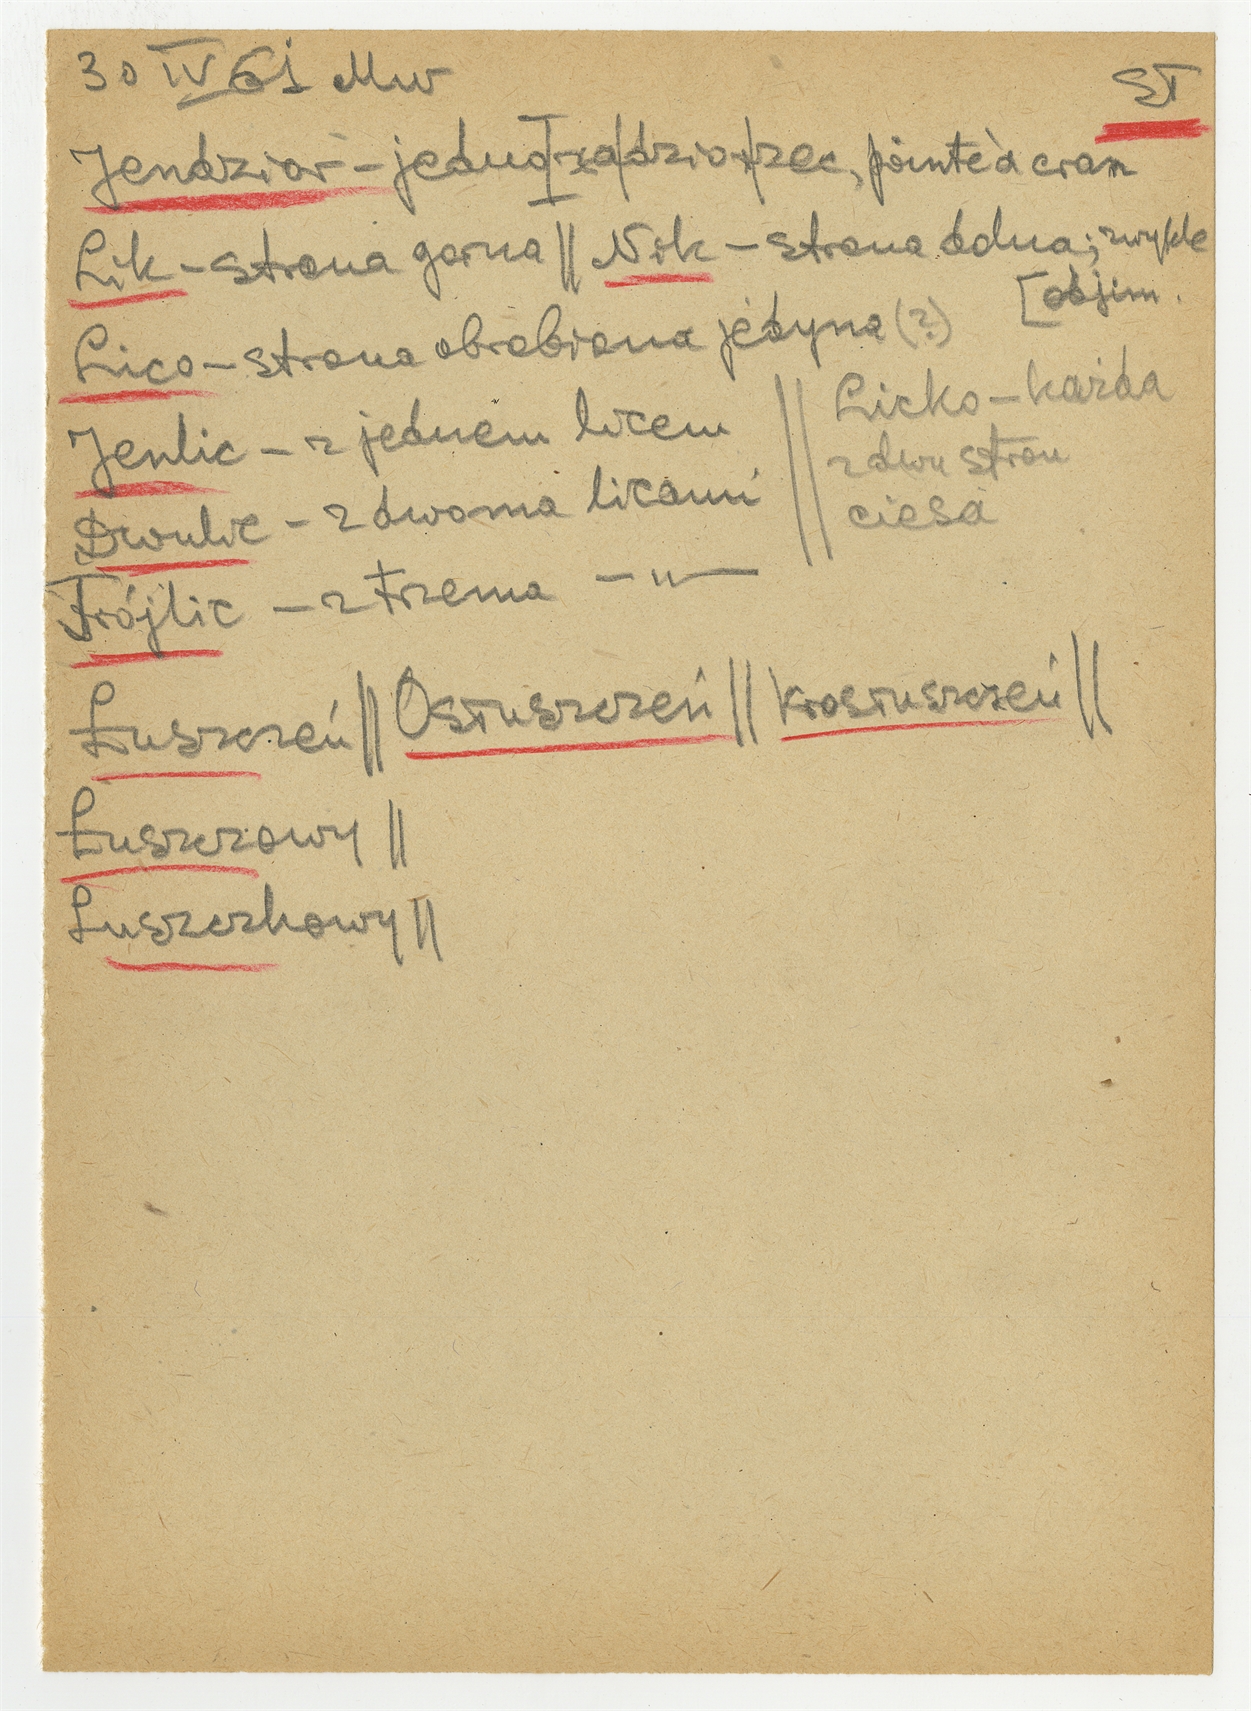 30 IV 61 Mw
ST
Jendzior - jedno zadziorzec, pointe à cran
Lik - strona gorna || Nik - strona dolna; zwykle
[objim.
Lico - strona obrobiona jedyna (?)
Jenlic - z jednem licem || Licko - każda
Dwulic - z dwoma licami || z dwu stron
ciosa
Trójlic - z trzema - " -
Łuszczeń || Osłuszczeń || Krosłuszczeń ||
Łuszczowy ||
Łuszczkowy ||